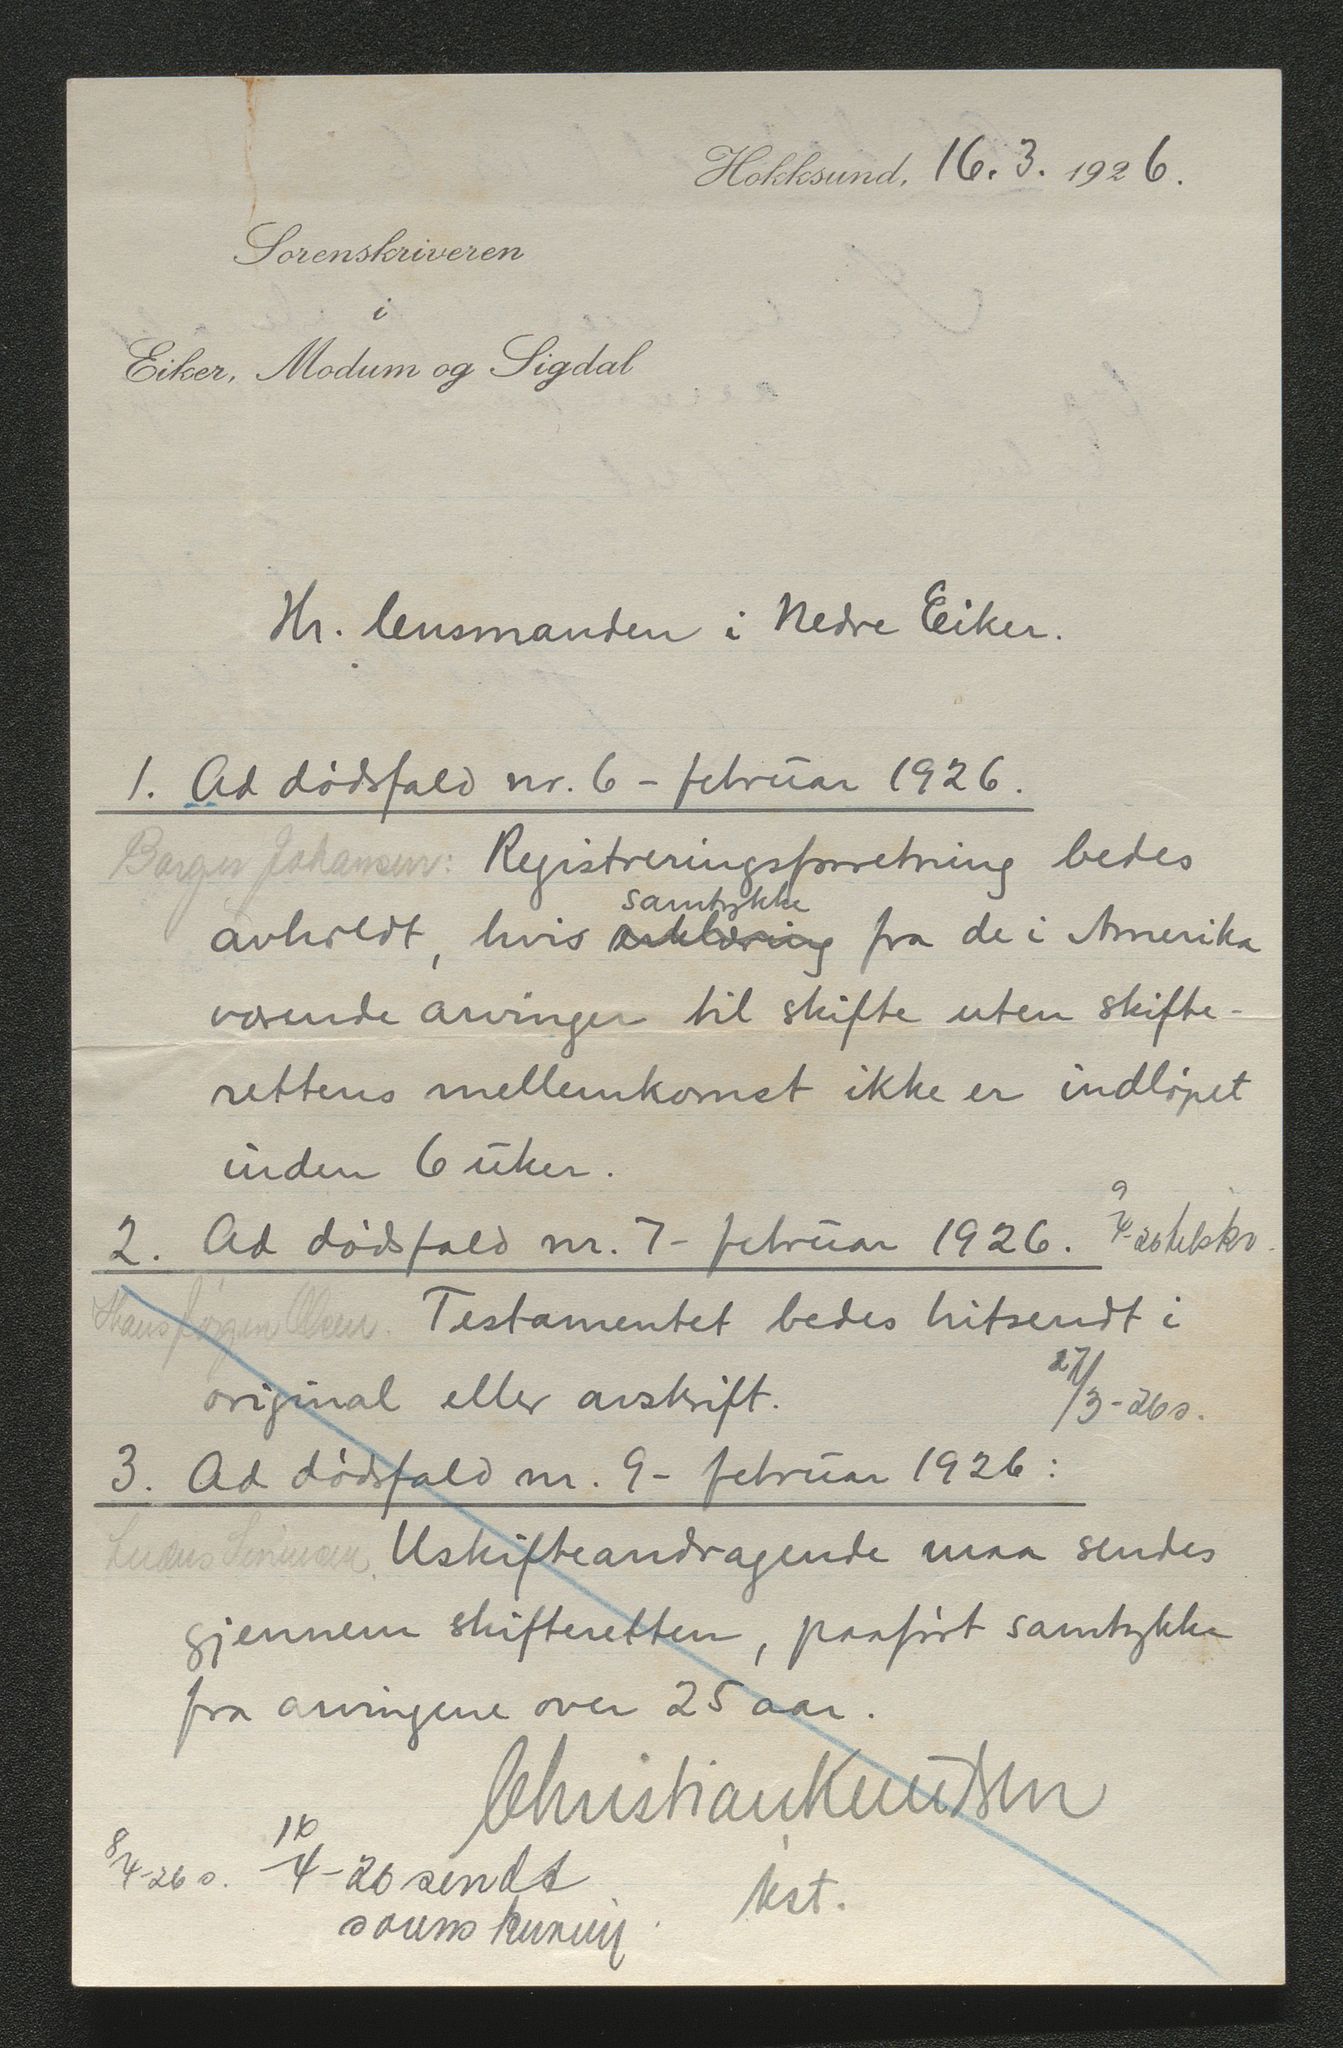 Hokksund, 16. 3. 1926.
Sorenskriveren
i
Eiker, Modum og Sigdal
Hr. lensmanden i Nedre Eiker.
1. Ad dødsfald nr. 6 – februar 1926.
Johansen: Registreringsforretning bedes
samtykke
avholdt, hvis erklæring fra de i Amerika
værende arvinger til skifte uten skifte-
rettens mellemkomst ikke er indløpet
inden 6 uker.
2. Ad dødsfald nr. 7 – februar 1926.
9/4-26
Hans Jørgen Olsen. Testamentet bedes hitsendt i
original eller avskrift.
27/3-26 s.
3. Ad dødsfald nr. 9 – februar 1926:
Uskifteandragende maa sendes
gjennem skifteretten, paaført samtykke
fra arvingene over 25 aar.
Christian Knudsen
kst.
8/4-26 s.
16/4-26 sendt